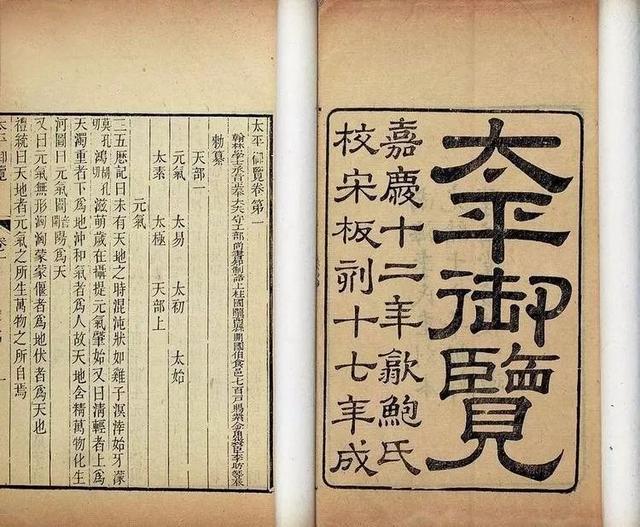 太平御覽
嘉慶十二年歙鮑氏
校宋板刻十七年成
太平御覽卷第一
翰林學士承旨正奉大夫守工部尚書知制誥上柱國隴西縣開國伯食邑七百戶賜紫金魚袋臣李昉等奉
勅纂
天部一
元氣 太易 太初 太始
太素 太極 天部上
元氣
三五厯記曰未有天地之時混沌狀如雞子溟涬始牙濛
鴻滋萌歲在攝提元氣肇始又曰清輕者上爲
天濁重者下爲地沖和氣者爲人故天地含精萬物化生
河圖曰元氣闓陽爲天
又曰元氣無形洶洶蒙蒙偃者爲地伏者爲天也
禮統曰天地者元氣之所生萬物之所自焉
太平御覽